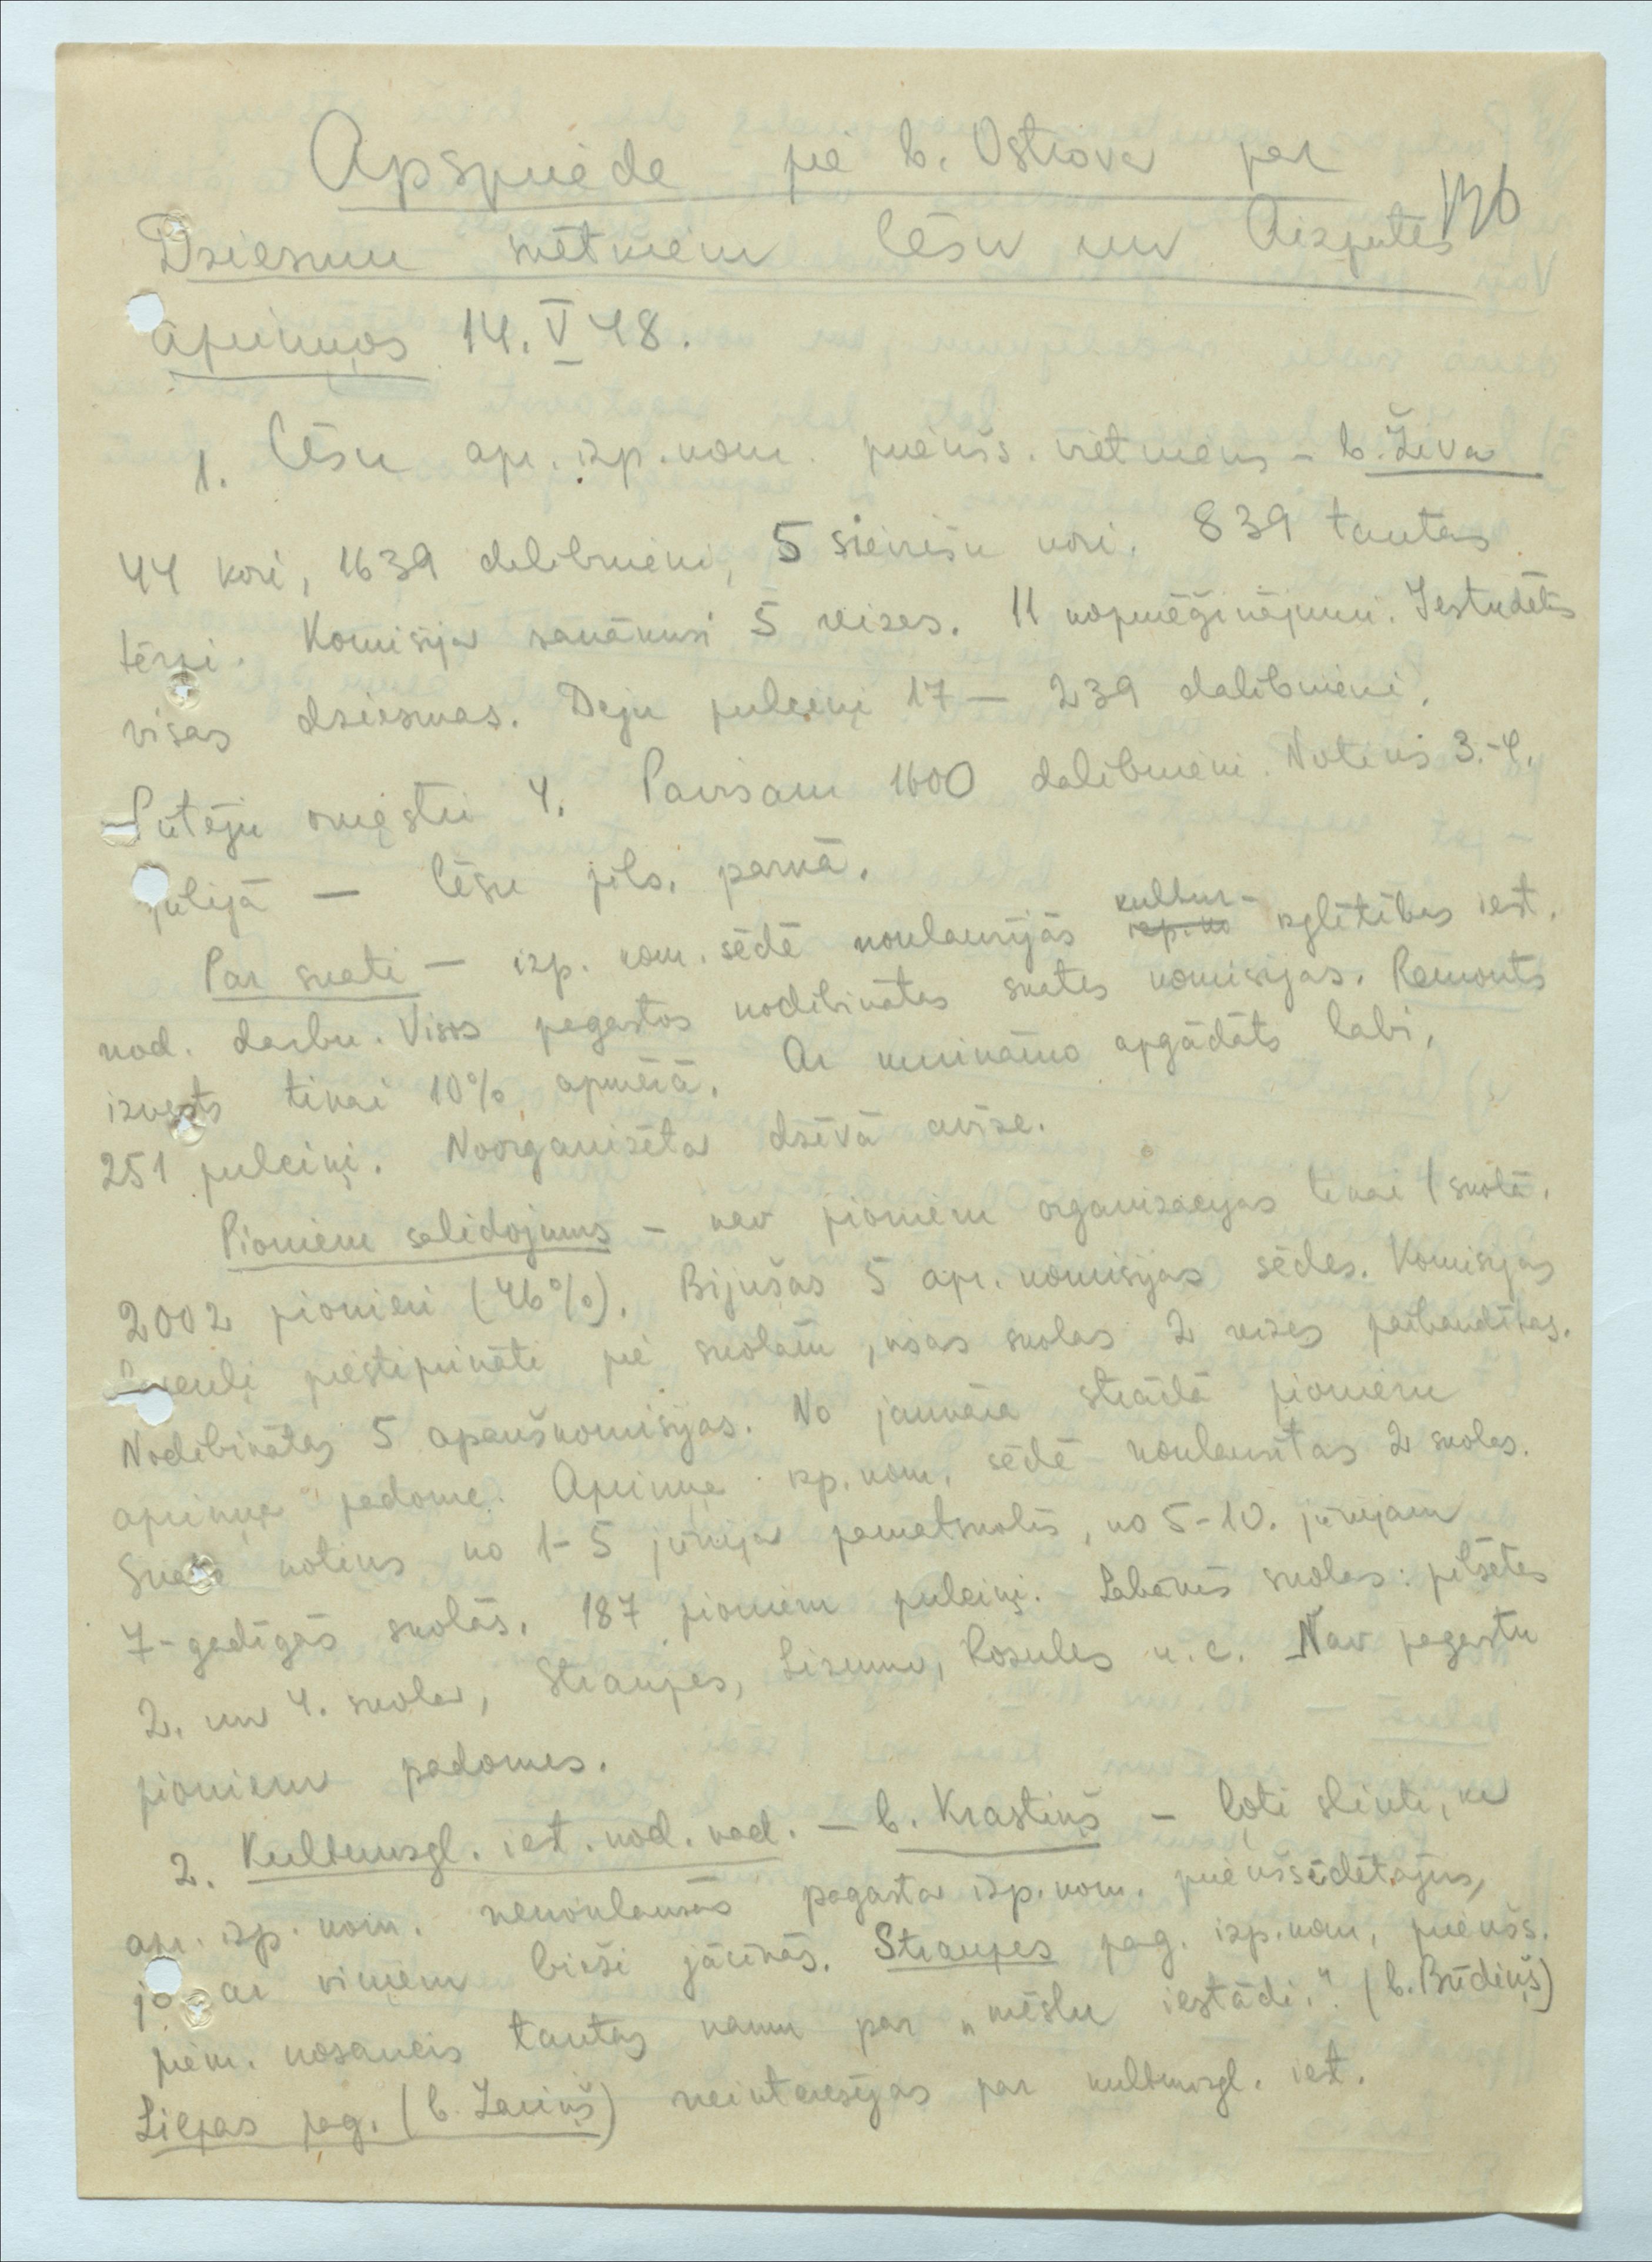 Apspriede pie b. Ostrova par
136
Dziesmu svētkiem Cēsu un Aizputes
apriņķos 14. V 48.
1. Cēsu apr. izp. kom. priekšs. vietnieks – b. Ževa
44 kori, 1639 dalībnieki, 5 sieviešu kori. 839 tautas
tērpi. Komisija sanākusi 5 reizes. 11 kopmēģinājumi. Iestudētas
visas dziesmas. Deju pulciņi 17 – 239 dalībnieki.
Pūtēju orķestri 4. Pavisam 1600 dalībnieki. Notiks 3.-4.
jūlijā – Cēsu pils. parkā.
Par skati – izp. kom. sēdē noklausījās kultur- izglītības iest.
nod. darbu. Visos pagastos nodibinātas skates komisijas. Remonts
izvests tikai 10% apmērā. Ar kurināmo apgādāts labi.
251 pulciņi. Noorganizēta dzīvā avīze.
Pionieru salidojums – nav pionieru organizācijas tikai 1 skolā.
2002 pionieri (46%). Bijušas 5 apr. komisijas sēdes. Komisijas
locekļi piestiprināti pie skolām, visas skolas 2 reizes pārbaudītas.
Nodibinātas 5 apakškomisijas. No janvāra strādā pionieru
apriņķa padome. Apriņķa izp. kom. sēdē noklausītas 2 skolas.
Skate notiks no 1-5 jūnija pamatskolās, no 5-10. jūnijam
7-gadīgās skolās. 187 pionieru pulciņi. Labākās skolas: pilsētas
2. un 4. skola, Straupes, Lizuma, Rozulas u.c. Nav pagastu
pionieru padomes.
2. Kulturizgl. iest. nod. vad. – b. Krastiņš – ļoti slikti, ka
apr. izp. kom. nenoklausās pagasta izp. kom. priekšsēdētājus,
jo ar viņiem bieži jācīnās. Straupes pag. izp. kom. priekšs.
piem. nosaucis tautas namu par „mēslu iestādi." (b. Būdiņš)
Liepas pag. (b. Zariņš) neinteresējas par kulturizgl. iest.